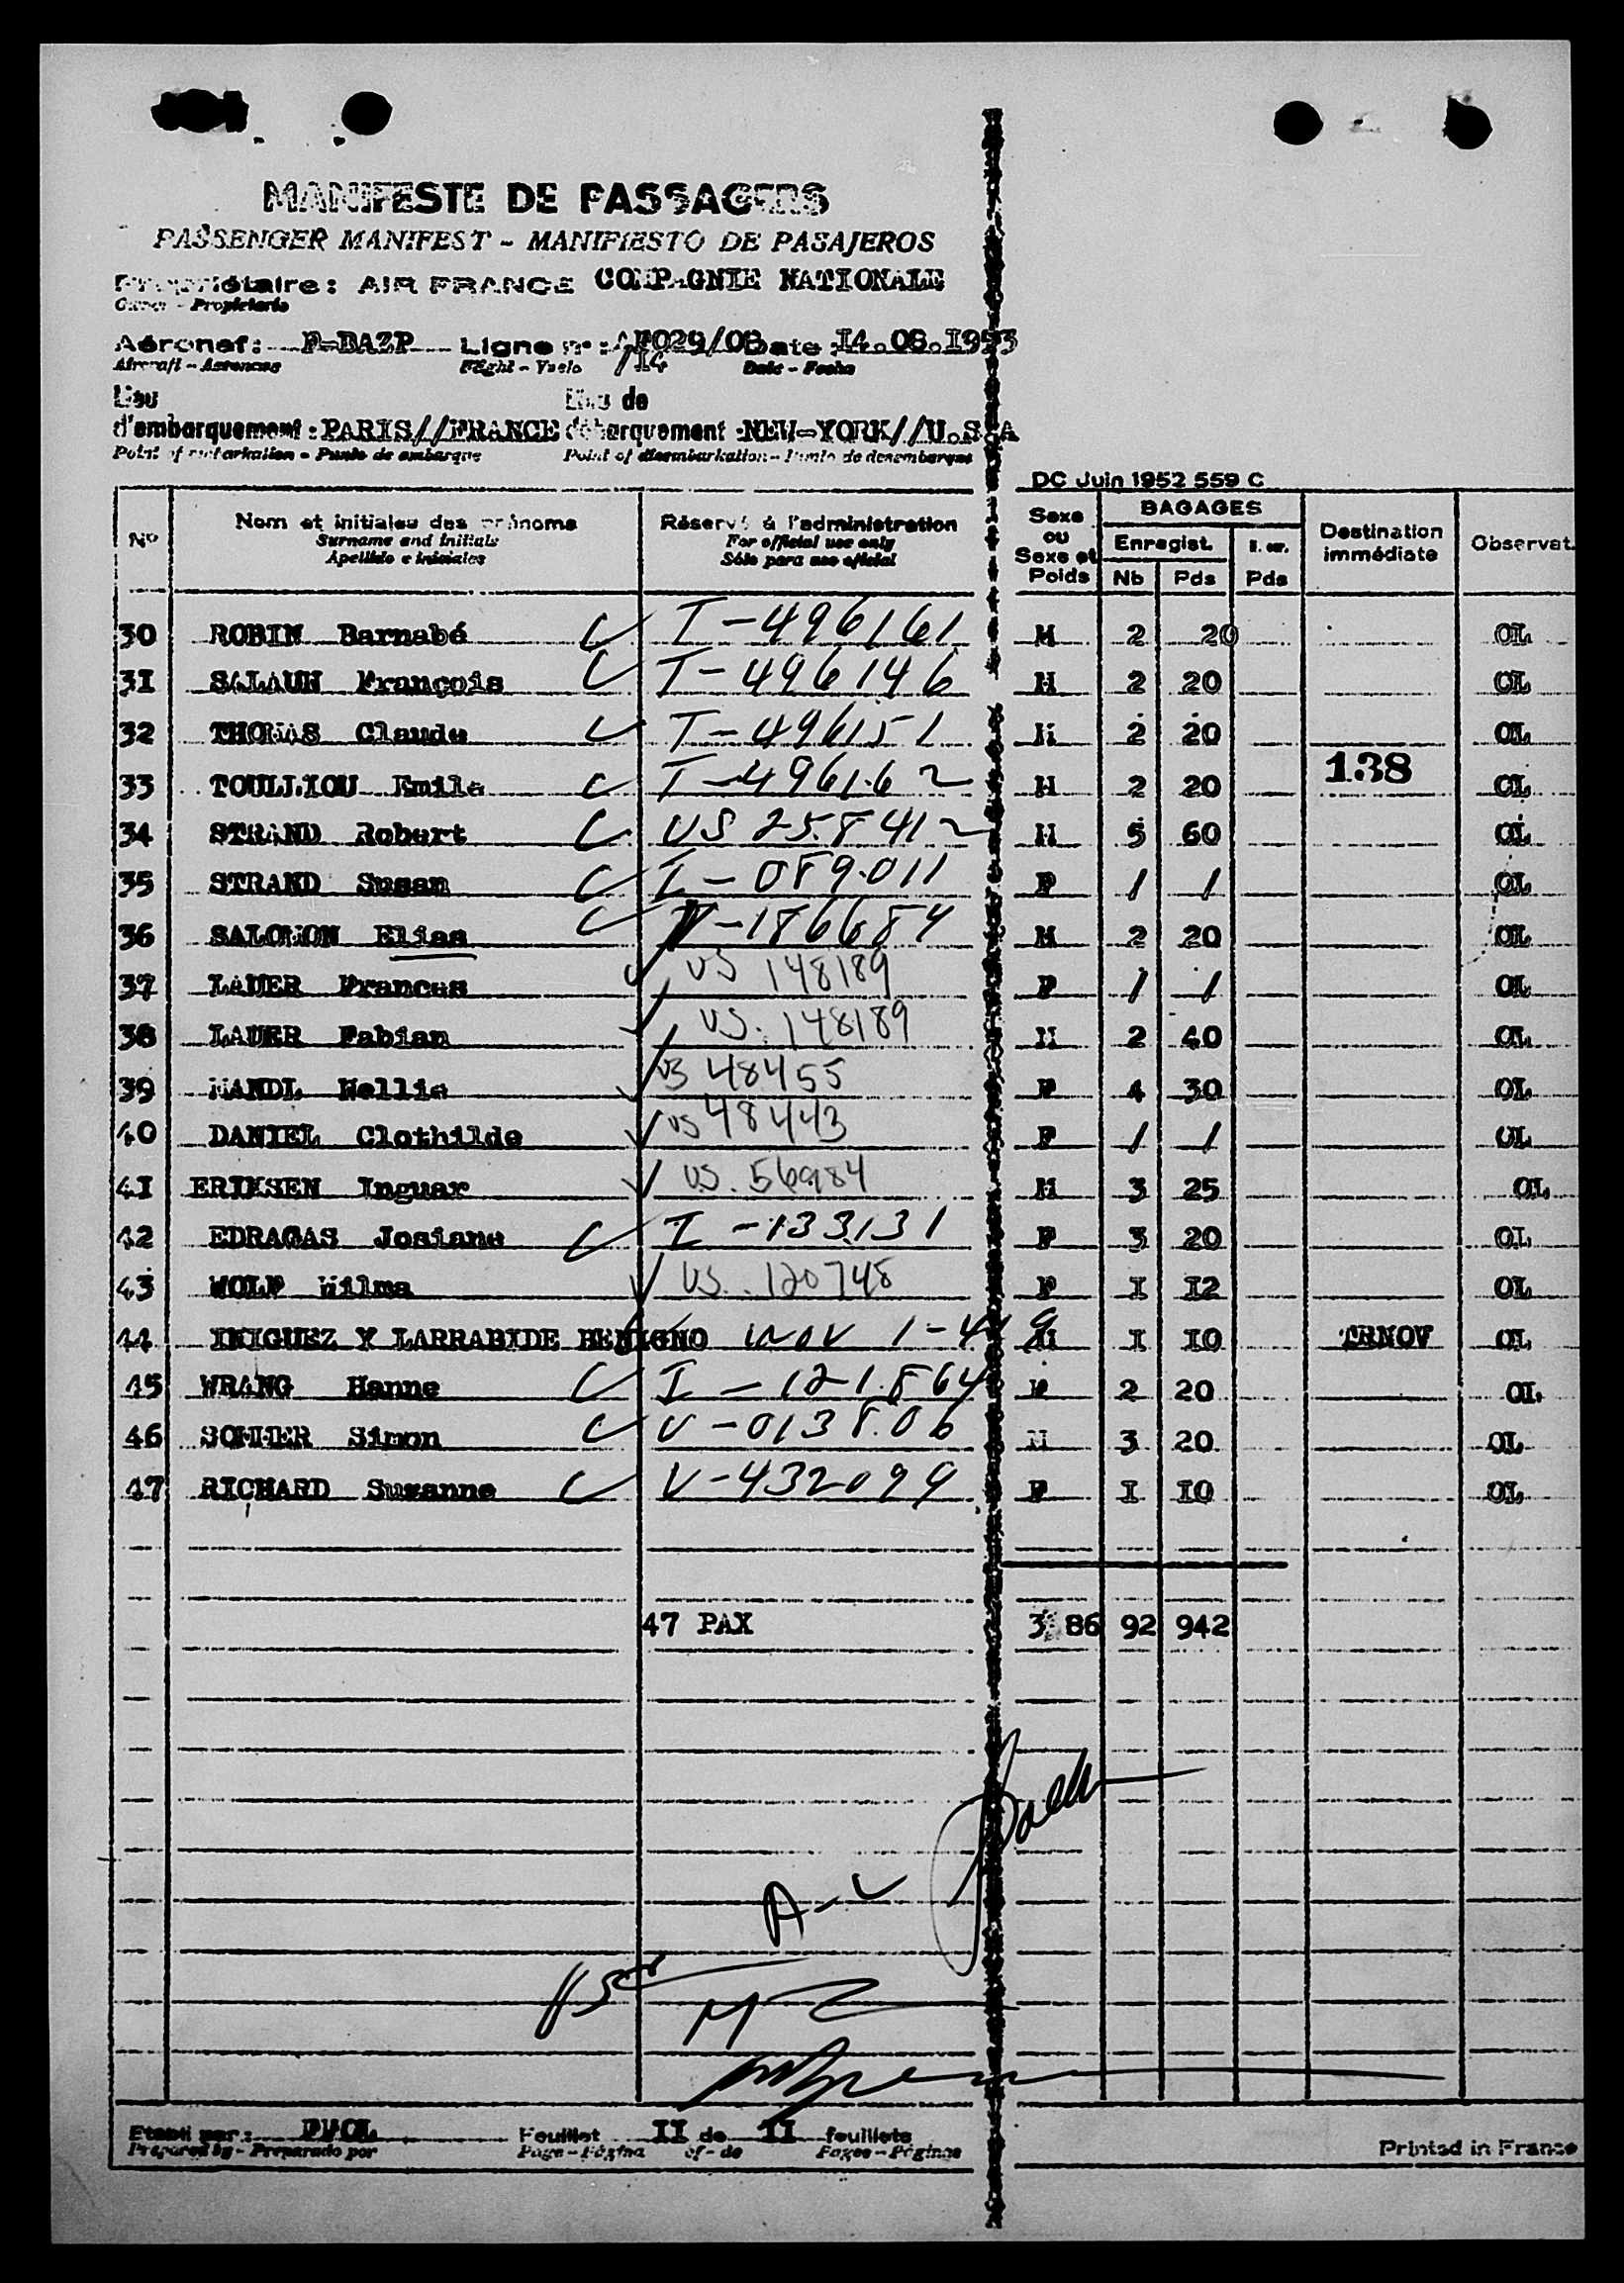 MANIFESTE DE PASSAGERS
PASSENGER MANIFEST - MANIFIESTO DE PASAJEROS
Propriétaire : AIR FRANCE COMPAGNIE NATIONALE
Owner - Propietario
Aéronef : F-BAZP Ligne n° : AF029/08 Date : 14.08.1953
/14
Aircraft - Aeronave Flight - Vuelo Date - Fecha
Lieu Lieu de
d'embarquement : PARIS//FRANCE débarquement : NEW-YORK//U.S.A
Point of embarkation - Punto de embarque Point of disembarkation - Punto de desembarque
DC Juin 1952 559 C
N° Nom et initiales des prénoms Réservé à l'administration Sexe ou Sexe et Poids BAGAGES Destination immédiate Observat.
Surname and initials For official use only Enregist.
Apellido e iniciales Sólo para uso oficial Nb Pds Pds
30 ROBIN Barnabé I-496161 M 2 20 OL
31 SALAUN François I-496146 M 2 20 OL
32 THOMAS Claude I-496151 M 2 20 OL
33 TOULLIOU Emile I-496162 M 2 20 138 OL
34 STRAND Robert US 258412 M 5 60 OL
35 STRAND Susan I-089.011 F / / OL
36 SALOMON Elias V-186684 M 2 20 OL
37 LAUER Frances US 148189 F / / OL
38 LAUER Fabian US. 148189 M 2 40 OL
39 MANDL Nellie US 48455 F 4 30 OL
40 DANIEL Clothilde US 48443 F / / OL
41 ERIKSEN Inguar US. 56984 M 3 25 OL
42 EDRAGAS Josiane I-133131 F 3 20 OL
43 WOLF Wilma US. 120748 F I I2 OL
44 INIGUEZ Y LARRABIDE BENIGNO M I I0 TRNOV OL
45 WRANG Hanne I-121.864 F 2 20 OL
46 SOMMER Simon V-0138.06 M 3 20 OL
47 RICHARD Suzanne V-432099 F I I0 OL
47 PAX 3 86 92 942
Etabli par : Feuillet II de II feuillets
Prepared by - Preparado por Page - Página of - de Pages - Páginas
Printed in France